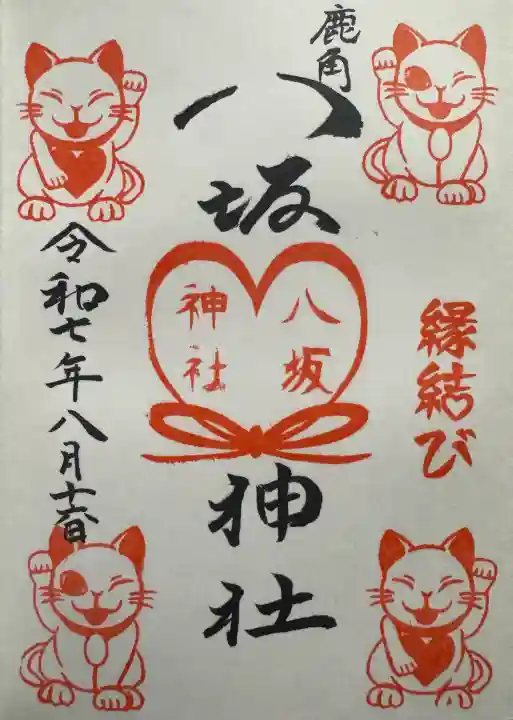 鹿角
八坂神社
八坂
神社
縁結び
令和七年八月十六日